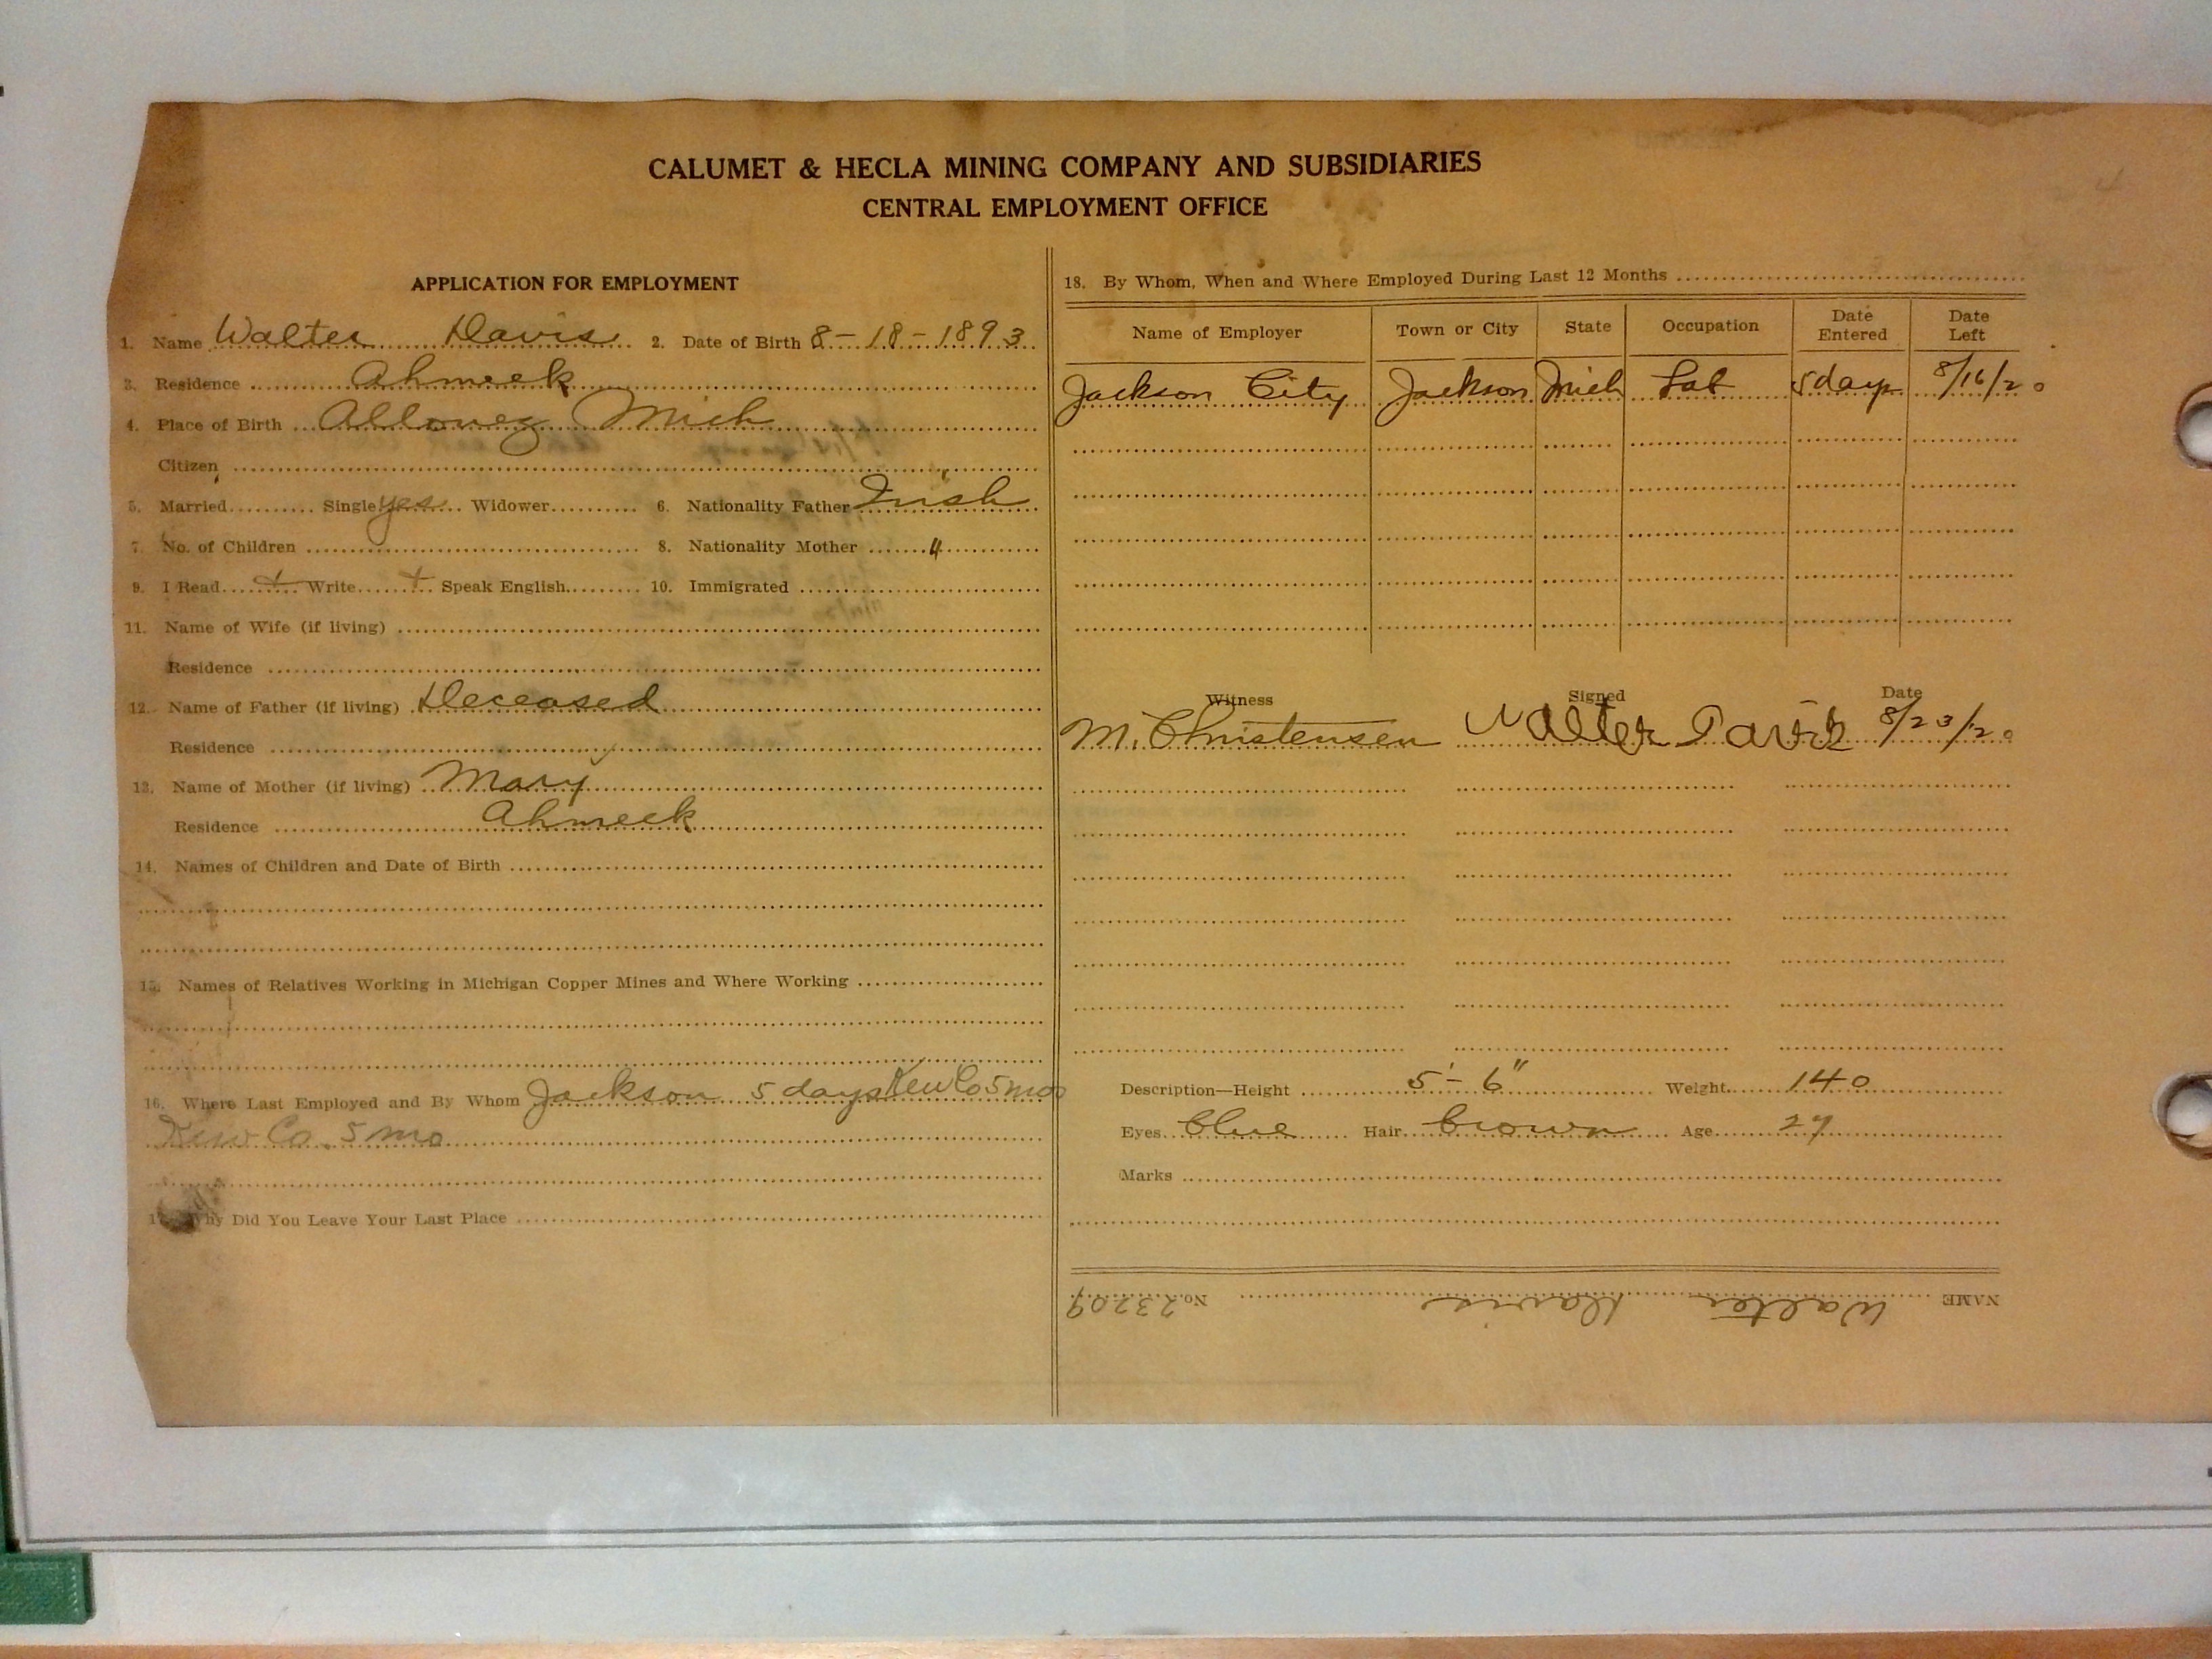 CALUMET & HECLA MINING COMPANY AND SUBSIDIARIES
CENTRAL EMPLOYMENT OFFICE
APPLICATION FOR EMPLOYMENT
1. Name Walter Davis 2. Date of Birth 8-18-1893
3. Residence Ahmeek
4. Place of Birth Allouez Mich
Citizen
5. Married Single yes Widower 6. Nationality Father Irish
7. No. of Children 8. Nationality Mother "
9. I Read + Write + Speak English 10. Immigrated
11. Name of Wife (if living)
Residence
12. Name of Father (if living) Deceased
Residence
13. Name of Mother (if living) Mary
Residence Ahmeek
14. Names of Children and Date of Birth
15. Names of Relatives Working in Michigan Copper Mines and Where Working
16. Where Last Employed and By Whom Jackson 5 days Kew Co 5 mo
Kew Co. 5 mo
17. Why Did You Leave Your Last Place
18. By Whom, When and Where Employed During Last 12 Months
Name of Employer Town or City State Occupation Date Entered Date Left
Jackson City Jackson Mich Lab 5 days 8/16/20
Witness Signed Date
M. Christensen Walter Davis 8/23/20
Description—Height 5'-6" Weight 140
Eyes blue Hair brown Age 27
Marks
NAME Walter Davis No. 23209